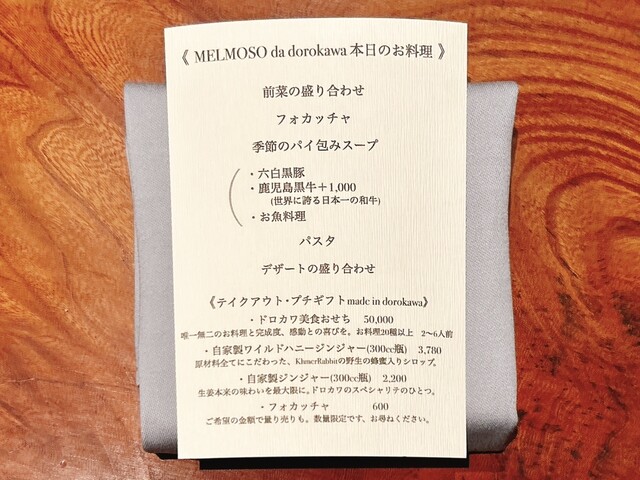 《 MELMOSO da dorokawa 本日のお料理 》
前菜の盛り合わせ
フォカッチャ
季節のパイ包みスープ
・六白黒豚
・鹿児島黒牛＋1,000
(世界に誇る日本一の和牛)
・お魚料理
パスタ
デザートの盛り合わせ
《テイクアウト・プチギフトmade in dorokawa》
・ドロカワ美食おせち　50,000
唯一無二のお料理と完成度、感動との喜びを。お料理20種以上　2〜6人前
・自家製ワイルドハニージンジャー(300cc瓶)　3,780
原材料全てにこだわった、KhmerRabbitの野生の蜂蜜入りシロップ。
・自家製ジンジャー(300cc瓶)　2,200
生姜本来の味わいを最大限に。ドロカワのスペシャリテのひとつ。
・フォカッチャ　600
ご希望の金額で量り売りも。数量限定です、お尋ねください。